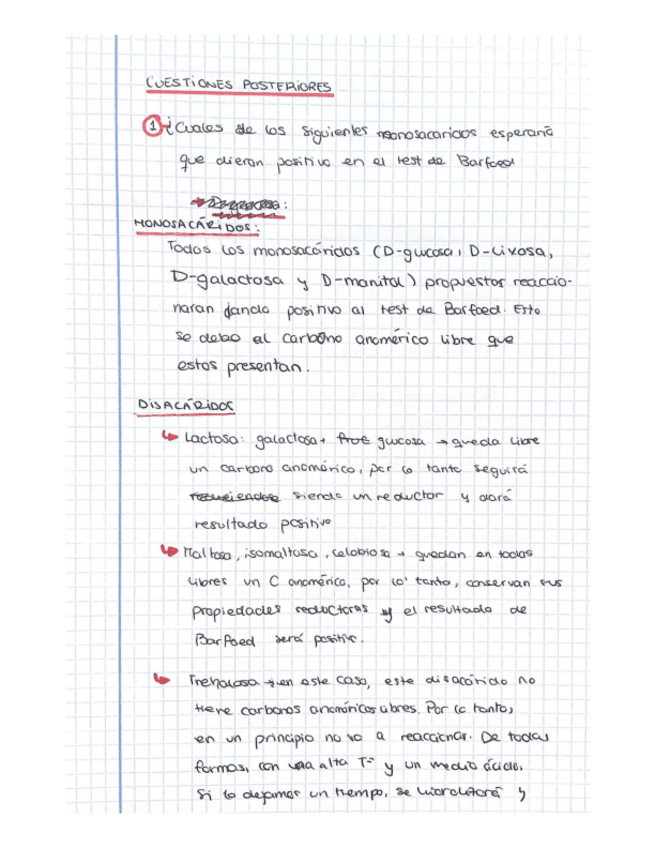 CUESTIONES POSTERIORES
1 ¿Cuales de los siguientes monosacaridos esperaria
que dieran positivo en el test de Barfoed
MONOSACÁRIDOS:
Todos los monosacáridos (D-glucosa, D-Lixosa,
D-galactosa y D-manitol) propuestos reaccio-
naran dando positivo al test de Barfoed. Esto
se debo al carbono anomérico libre que
estos presentan.
DISACÁRIDOS
↳ Lactosa: galactosa + glucosa → queda libre
un carbono anomérico, por lo tanto seguirá
siendo un reductor y dará
resultado positivo
↳ Maltosa, isomaltosa, celobiosa → quedan en todas
libres un C anomérico, por lo tanto, conservan sus
propiedades reductoras y el resultado de
Barfoed será positivo.
↳ Trehalosa → en este caso, este disacárido no
tiene carbonos anoméricos libres. Por lo tanto,
en un principio no va a reaccionar. De todas
formas, con una alta Tª y un medio ácido,
si lo dejamos un tiempo, se hidrolizará y